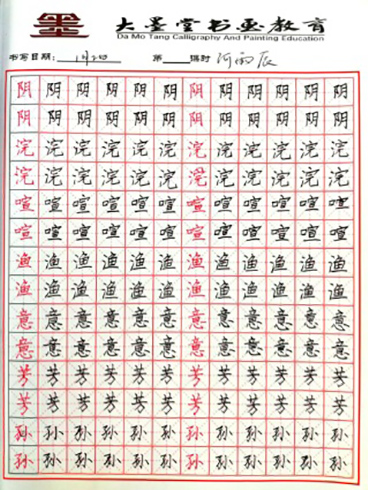 大墨堂书画教育
Da Mo Tang Calligraphy And Painting Education
书写日期: 1月 第 课时 何雨辰
阴阴阴阴阴阴阴阴阴阴阴阴
阴阴阴阴阴阴阴阴阴阴阴阴
浣浣浣浣浣浣浣浣浣浣浣浣
浣浣浣浣浣浣浣浣浣浣浣浣
喧喧喧喧喧喧喧喧喧喧喧喧
喧喧喧喧喧喧喧喧喧喧喧喧
渔渔渔渔渔渔渔渔渔渔渔渔
渔渔渔渔渔渔渔渔渔渔渔渔
意意意意意意意意意意意意
意意意意意意意意意意意意
芳芳芳芳芳芳芳芳芳芳芳芳
芳芳芳芳芳芳芳芳芳芳芳芳
孙孙孙孙孙孙孙孙孙孙孙孙
孙孙孙孙孙孙孙孙孙孙孙孙